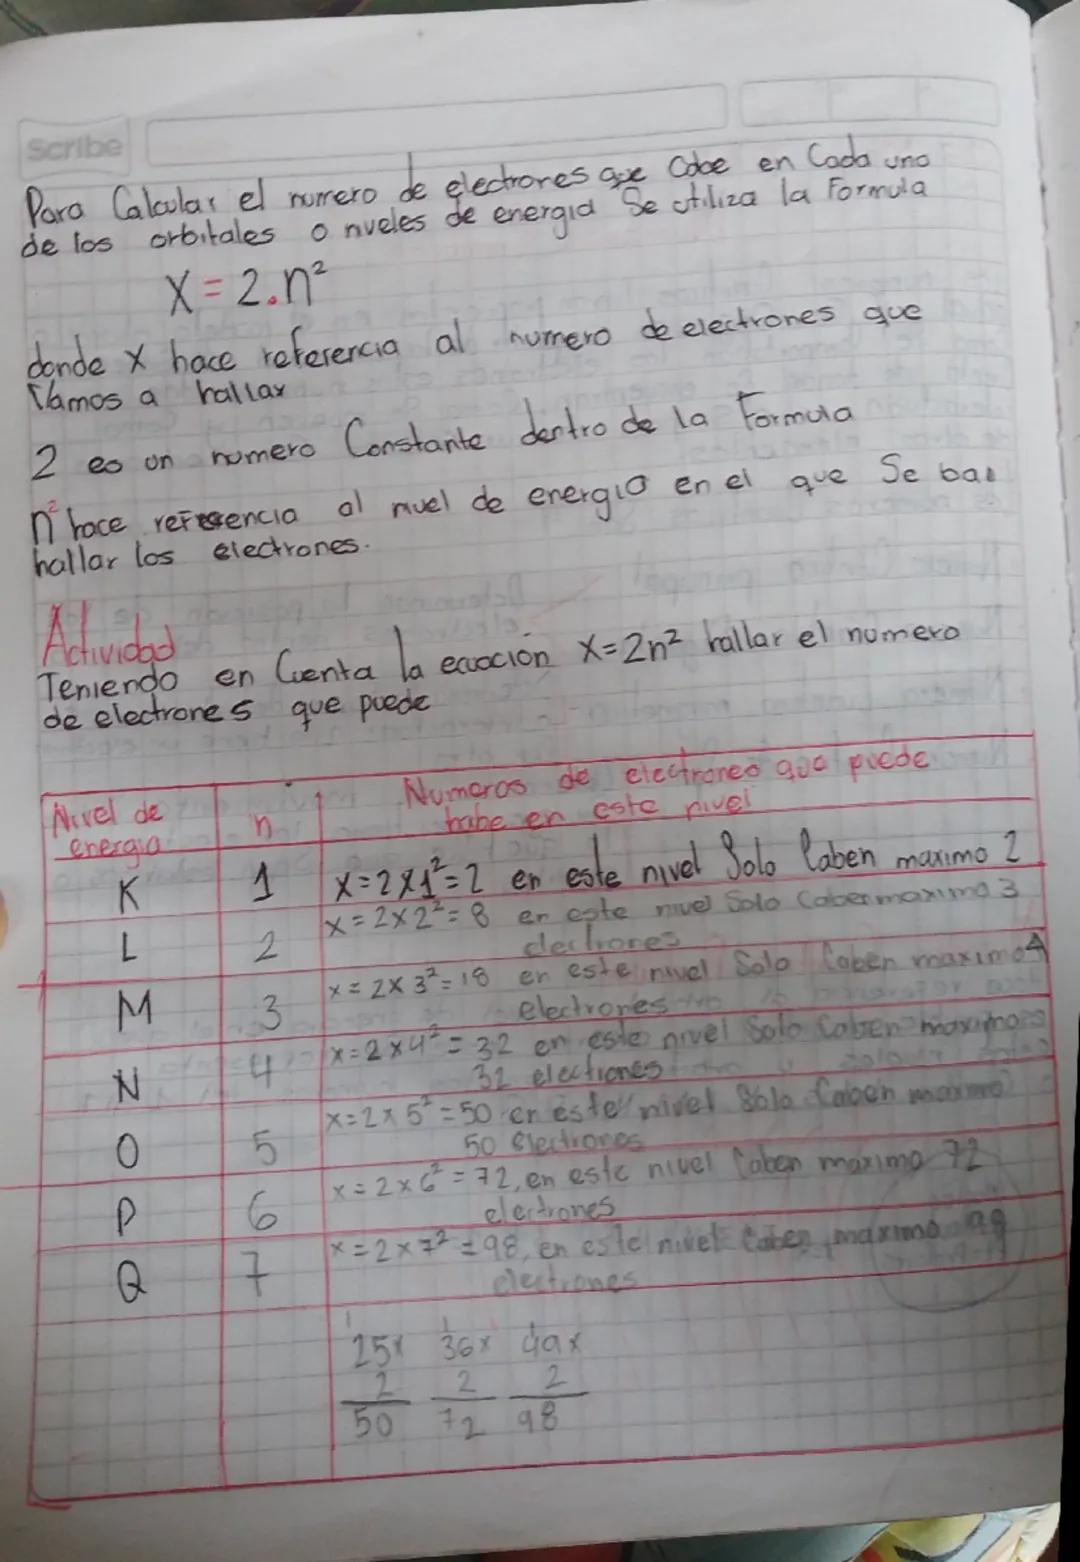 Scribe
Para Calcular el numero de electrones que Cabe en Cada uno
de los orbitales o niveles de energia Se utiliza la Formula
X = 2.n²
donde X hace referencia al numero de electrones que
Vamos a hallar
2 es un numero Constante dentro de la Formula
n² hace referencia al nivel de energia en el que Se ban
hallar los electrones.
Actividad
Teniendo en Cuenta la ecuación X=2n² hallar el numero
de electrones que puede
Nivel de energia n Numeros de electrones que puede
habe en este nivel
K 1 X=2x1²=2 en este nivel Solo Caben maximo 2
L 2 x=2x2²=8 en este nivel Solo Caben maximo 3
electrones
M 3 x=2x3²=18 en este nivel Solo Caben maximo 4
electrones
N 4 x=2x4²=32 en este nivel Solo Caben maximo
32 electrones
O 5 x=2x5²=50 en este nivel Solo Caben maximo
50 electrones
P 6 x=2x6²=72, en este nivel Caben maximo 72
electrones
Q 7 x=2x7²=98, en este nivel Caben maximo 98
electrones
1 1
25x 36x 49x
2 2 2
50 72 98